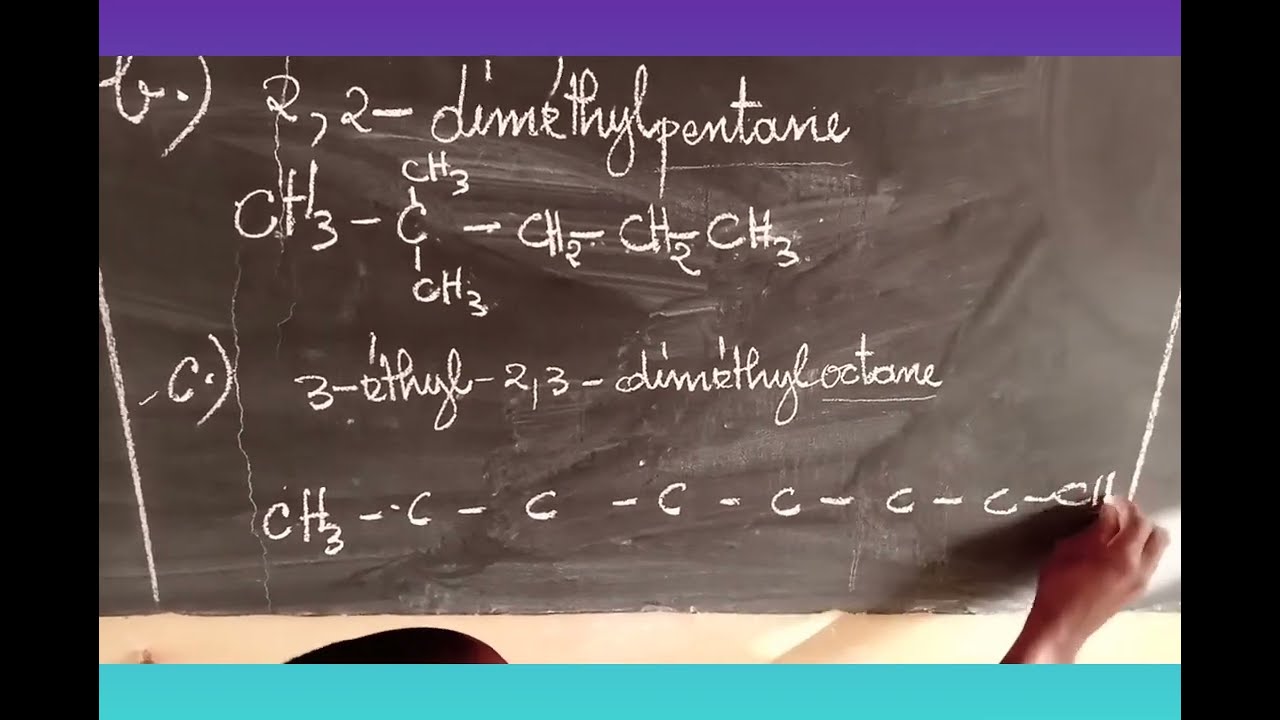 b.) 2,2-diméthylpentane
CH3
CH3 - C - CH2 - CH2 - CH3
CH3
c.) 3-éthyl-2,3-diméthyloctane
CH3 - C - C - C - C - C - C - CH